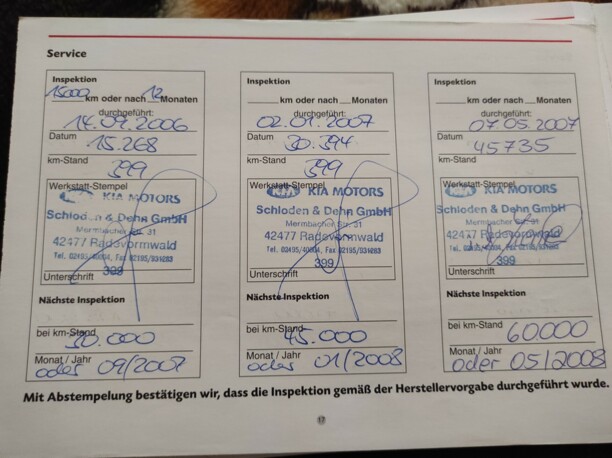 Service
Inspektion
15000 km oder nach 12 Monaten
durchgeführt:
14.09.2006
Datum
15.268
km-Stand
399
Werkstatt-Stempel
KIA MOTORS
Schloden & Dehn GmbH
Mermbacher Str. 31
42477 Radevormwald
Tel. 02195/40004, Fax 02195/931683
399
Unterschrift
Nächste Inspektion
bei km-Stand
30.000
Monat / Jahr
oder 09/2007
Inspektion
km oder nach Monaten
durchgeführt:
02.01.2007
Datum
30.394
km-Stand
399
Werkstatt-Stempel
KIA KIA MOTORS
Schloden & Dehn GmbH
Mermbacher Str. 31
42477 Radevormwald
Tel. 02195/40004, Fax 02195/931683
399
Unterschrift
Nächste Inspektion
bei km-Stand
45.000
Monat / Jahr
oder 01/2008
Inspektion
km oder nach Monaten
durchgeführt:
07.05.2007
Datum
45735
km-Stand
Werkstatt-Stempel
KIA MOTORS
Schloden & Dehn GmbH
Mermbacher Str. 31
42477 Radevormwald
399
Unterschrift
Nächste Inspektion
bei km-Stand
60000
Monat / Jahr
oder 05/2008
Mit Abstempelung bestätigen wir, dass die Inspektion gemäß der Herstellervorgabe durchgeführt wurde.